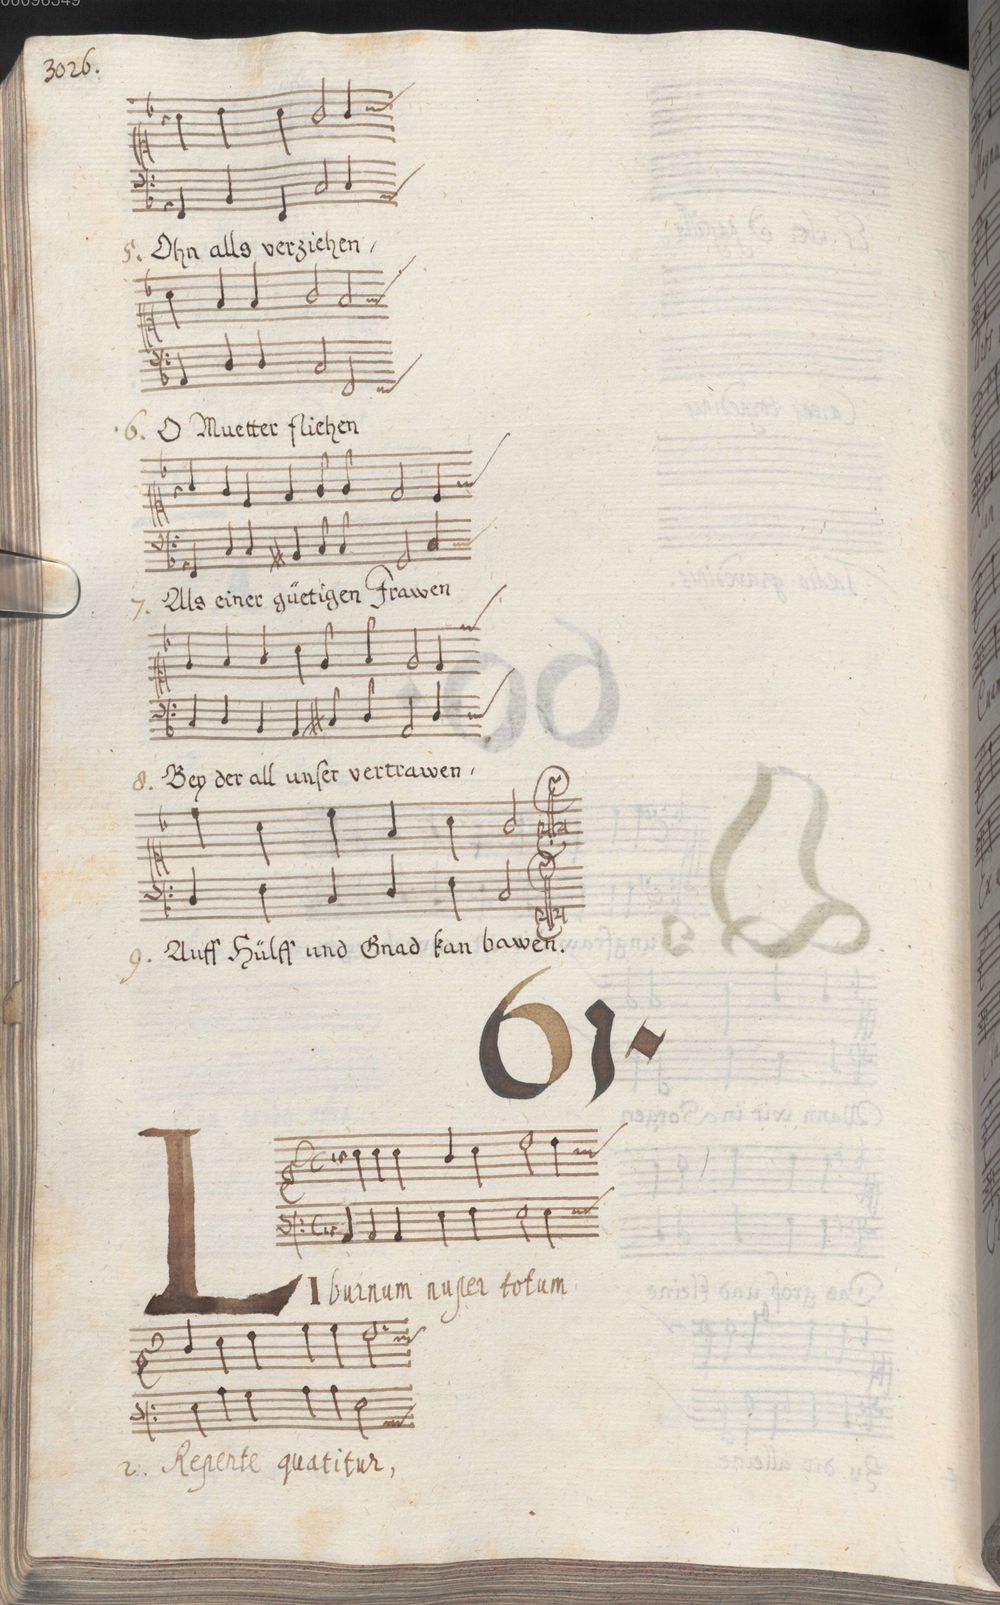 00096349
3026.
5. Ohn alls verziehen,
6. O Muetter fliehen
7. Als einer güetigen Frawen
8. Bey der all unser vertrawen,
9. Auff Hülff und Gnad kan bawen.
61.
LIburnum nuper totum
2. Repente quatitur,